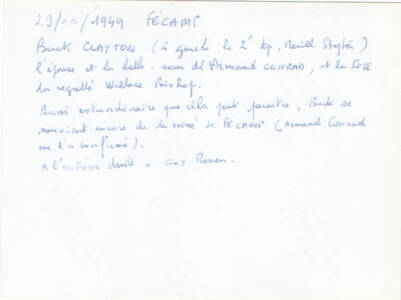 29/10/1949 FÉCAMP
Buck CLAYTON (à gauche le 2è tp, Merrill Stepter)
l'épouse et la belle-soeur d'Armand CONRAD, et la tête
du regretté Wallace Bishop.
Aussi extraordinaire que cela peut paraître, Buck se
souvient encore de la soirée de FÉCAMP (Armand Conrad
me l'a confirmé).
A l'extrême droite : Guy